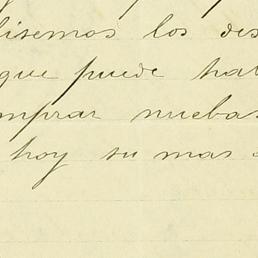 lisemos los des
que puede hab
mprar nuebas
hoy su mas